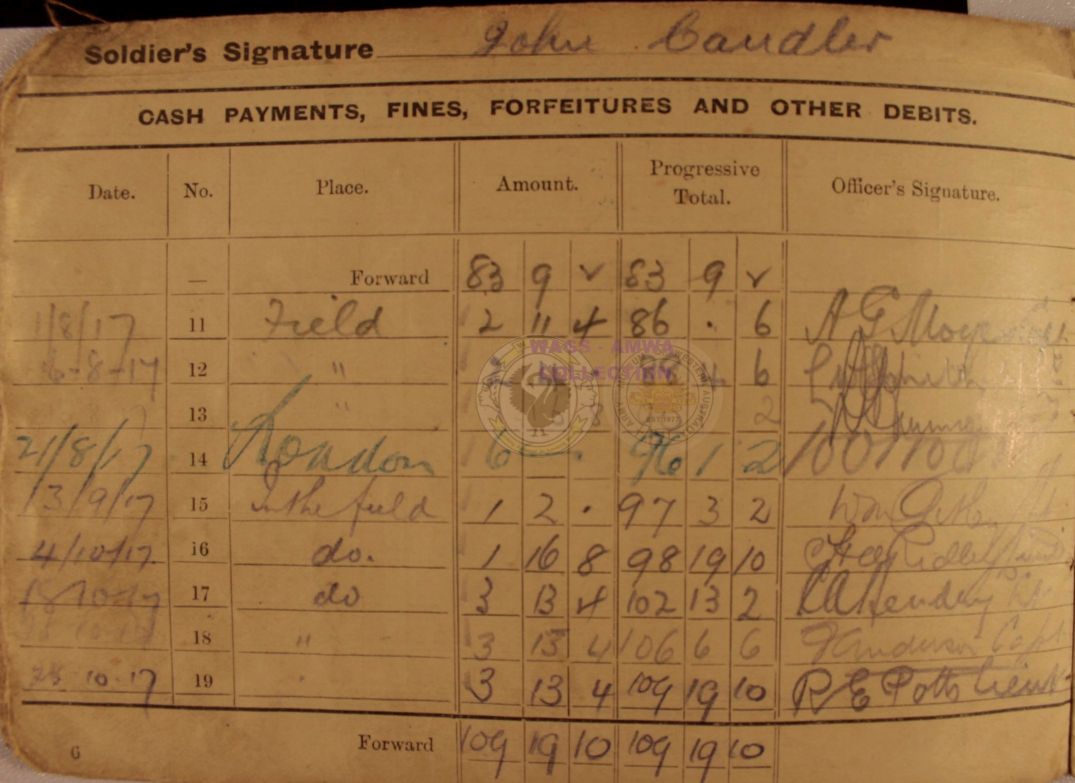 Soldier's Signature John Candler
CASH PAYMENTS, FINES, FORFEITURES AND OTHER DEBITS.
Date. No. Place. Amount. Progressive Total. Officer's Signature.
— Forward 83 9 ✓ 83 9 ✓
1/8/17 11 Field 2 11 4 86 . 6
6-8-17 12 " 6
WACS - AMWA
COLLECTION
13 " 8 2
21/8/17 14 London 6 96 1 2
13/9/17 15 In the field 1 2 . 97 3 2
4/10/17 16 do. 1 16 8 98 19 10 Ridley
18/10/17 17 do 3 13 4 102 13 2 Hendry
18 " 3 13 4 106 6 6 Anderson Capt
10-17 19 3 13 4 109 19 10 R E Potts Lieut
6 Forward 109 19 10 109 19 10